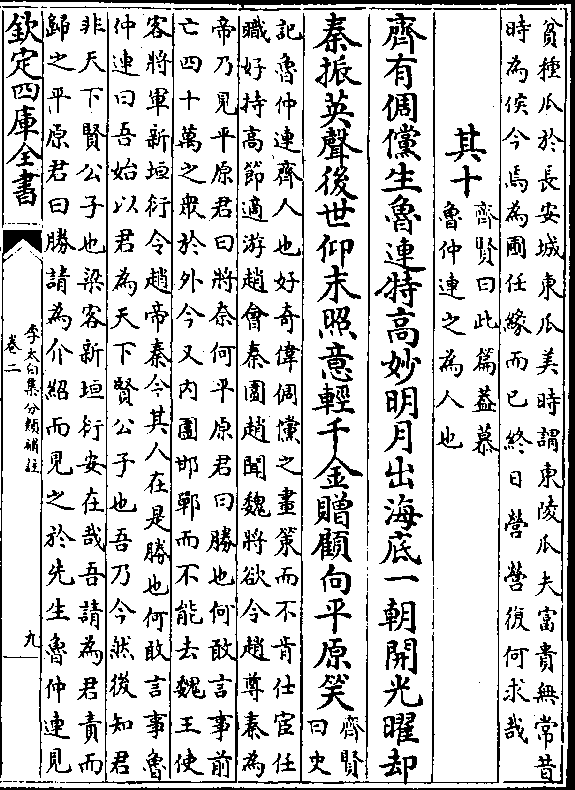 貧種瓜於長安城東瓜美時謂東陵瓜夫富貴無常昔
時為侯今焉為圃任緣而已終日營營復何求哉
其十
齊賢曰此篇蓋慕
魯仲連之為人也
齊有倜儻生魯連特高妙明月出海底一朝開光曜却
秦振英聲後世仰末照意輕千金贈顧向平原笑
齊賢
曰史
記魯仲連齊人也好奇偉倜儻之畫策而不肯仕宦任
職好持高節適游趙會秦圍趙聞魏將欲令趙尊秦為
帝乃見平原君曰將奈何平原君曰勝也何敢言事前
亡四十萬之衆於外今又内圍邯鄲而不能去魏王使
客將軍新垣衍令趙帝秦今其人在是勝也何敢言事魯
仲連曰吾始以君為天下賢公子也吾乃今然後知君
非天下賢公子也梁客新垣衍安在哉吾請為君責而
歸之平原君曰勝請為介紹而見之於先生魯仲連見
欽定四庫全書
李太白集分類補註
卷二
九